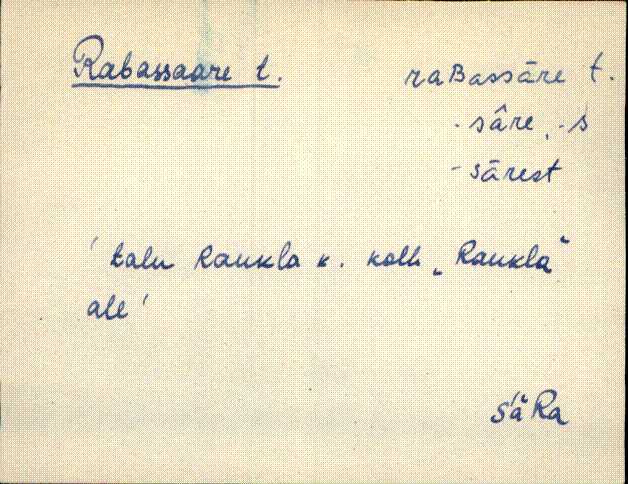 Rabassaare t.
raBassāre t.
-sâre, -s
-sārest
'talu Raukla k. kolh. „Raukla"
all'